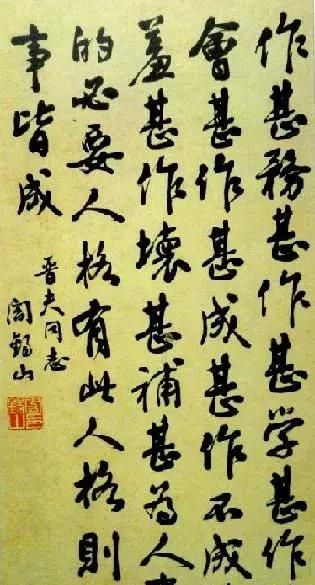 作甚務甚作甚學甚作
會甚作甚成甚作不成
羞甚作壞甚補甚為人
的必要人格有此人格則
事皆成
晉夫同志
閻錫山